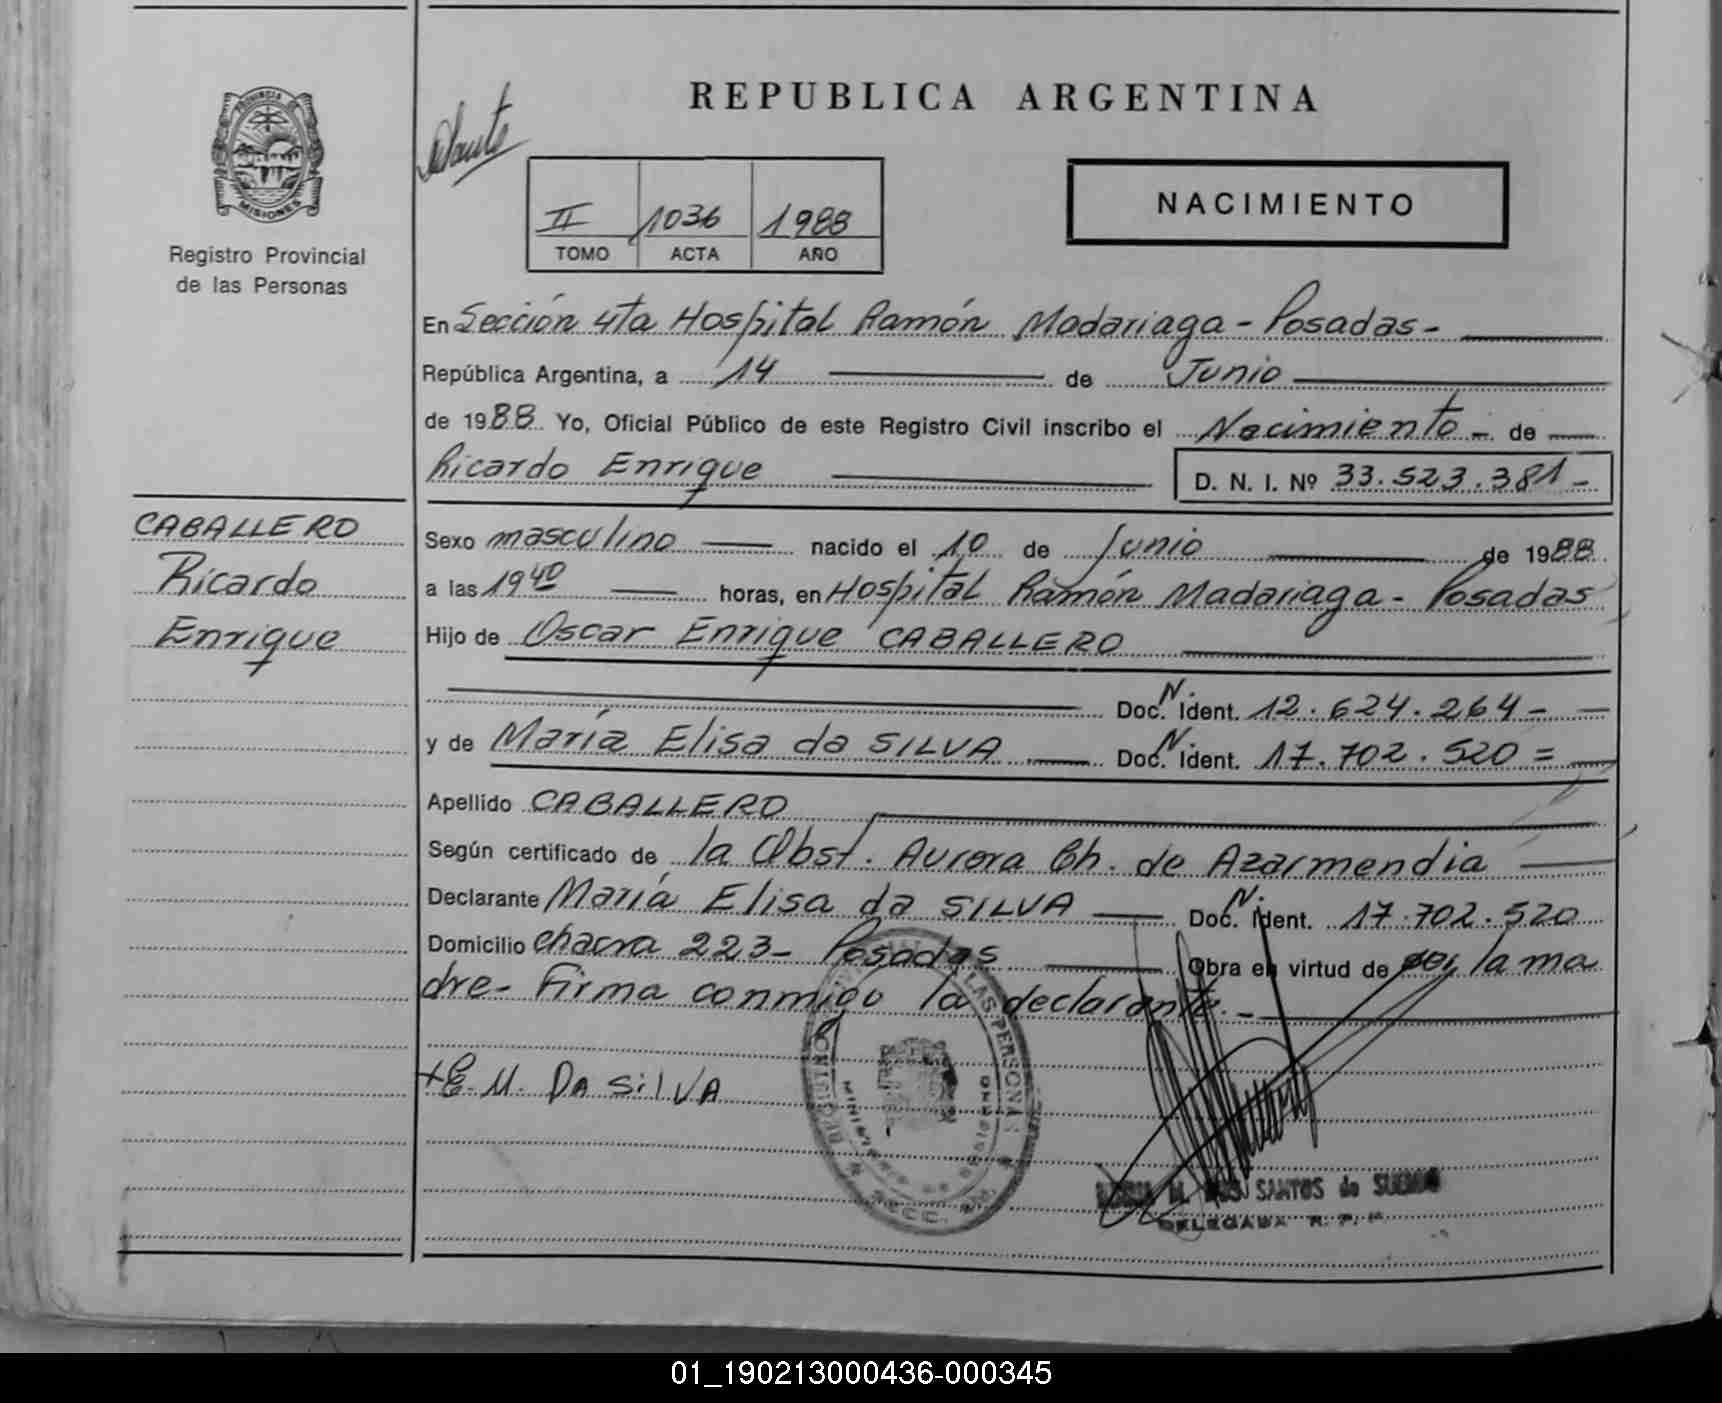 REPUBLICA ARGENTINA
PROVINCIA DE
MISIONES
Registro Provincial
de las Personas
II 1036 1988
TOMO ACTA AÑO
NACIMIENTO
En Sección 4ta Hospital Ramón Madariaga - Posadas -
República Argentina, a 14 de Junio
de 1988 Yo, Oficial Público de este Registro Civil inscribo el Nacimiento - de
Ricardo Enrique D. N. I. Nº 33.523.381-
CABALLERO
Ricardo
Enrique
Sexo masculino nacido el 10 de Junio de 1988
a las 19 40 horas, en Hospital Ramón Madariaga - Posadas
Hijo de Oscar Enrique CABALLERO
Doc. N. Ident. 12.624.264 -
y de María Elisa da SILVA Doc. N. Ident. 17.702.520 =
Apellido CABALLERO
Según certificado de la Obst. Aurora Ch. de Azarmendia
Declarante María Elisa da SILVA Doc. N. Ident. 17.702.520
Domicilio chacra 223 - Posadas Obra en virtud de ser la ma
dre - Firma conmigo la declarante. -
M. DA SilVA
LAS PERSONAS
SANTOS de
DELEGADA R. P. P.
01_190213000436-000345